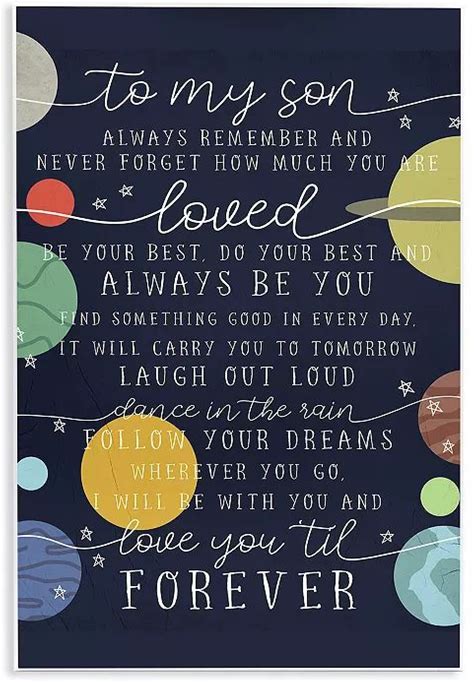 to my son
ALWAYS REMEMBER AND
NEVER FORGET HOW MUCH YOU ARE
loved
BE YOUR BEST, DO YOUR BEST AND
ALWAYS BE YOU
FIND SOMETHING GOOD IN EVERY DAY,
IT WILL CARRY YOU TO TOMORROW
LAUGH OUT LOUD
dance in the rain
FOLLOW YOUR DREAMS
WHEREVER YOU GO,
I WILL BE WITH YOU AND
love you 'til
FOREVER